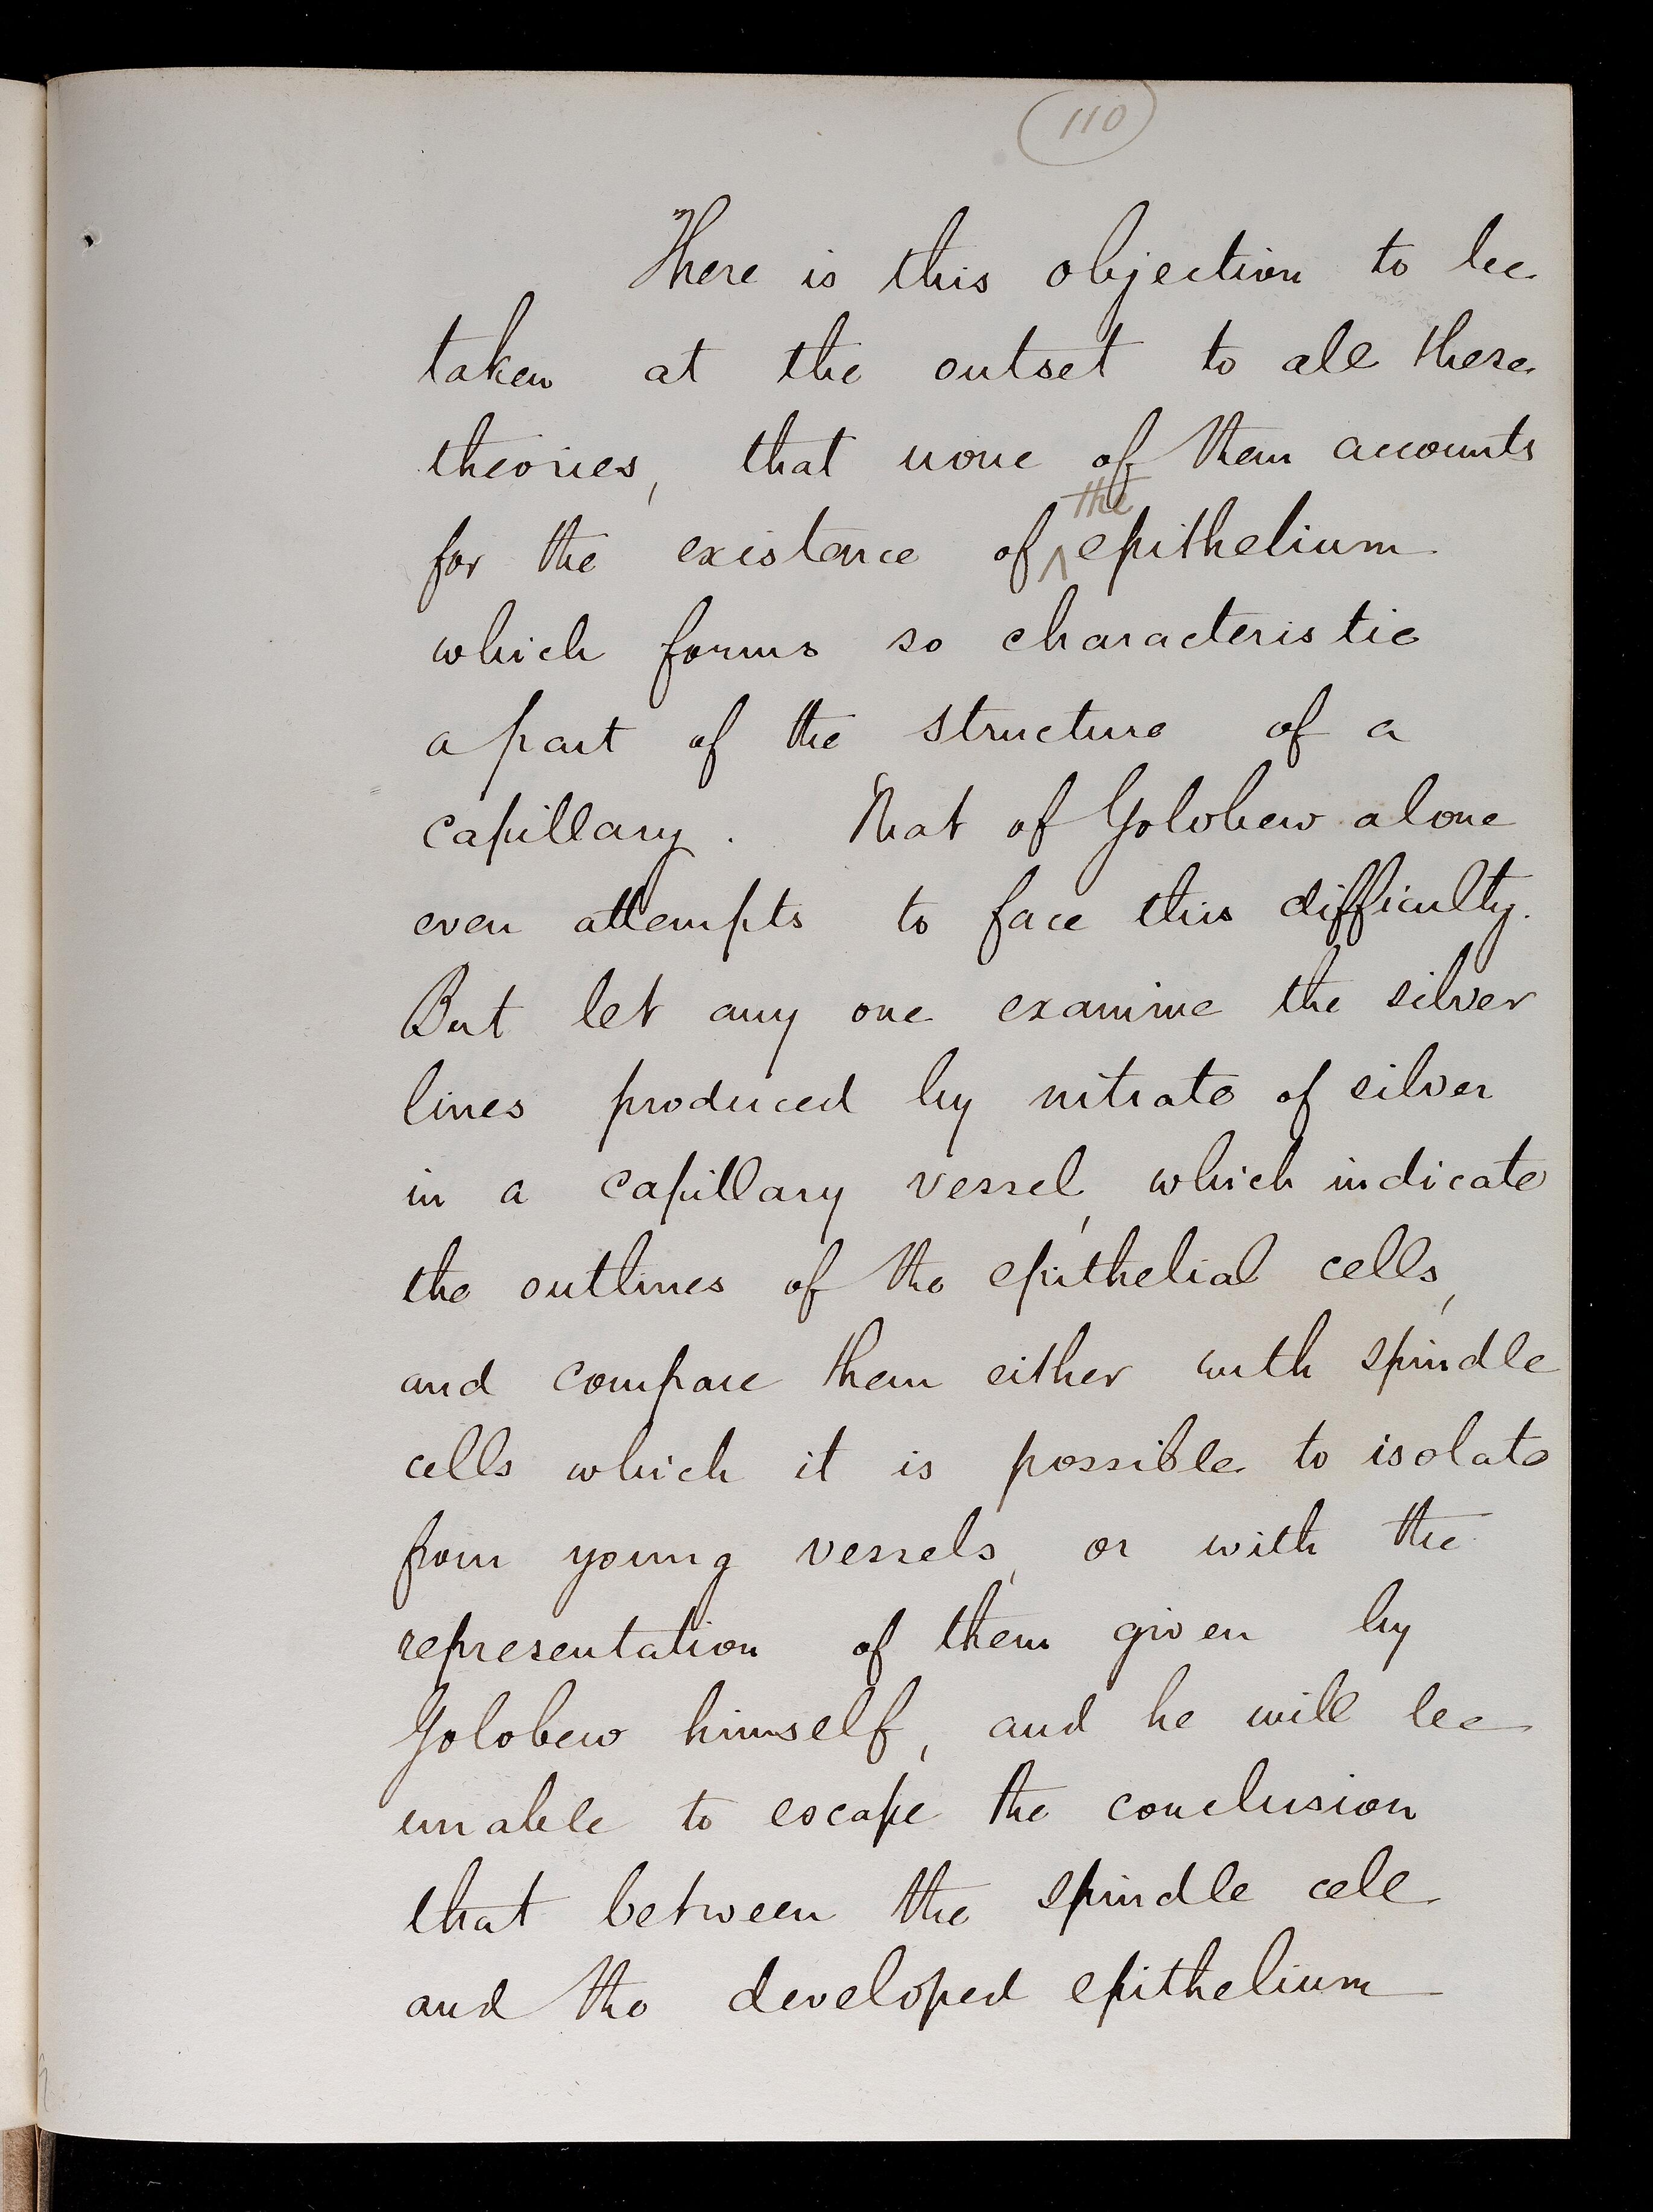 110
There is this objection to be
taken at the outset to all these
theories, that none of them accounts
the
for the existence of ^ epithelium
which forms so characteristic
a part of the structure of a
capillary. That of Golobew alone
even attempts to face this difficulty.
But let any one examine the silver
lines produced by nitrate of silver
in a capillary vessel, which indicate
the outlines of the epithelial cells,
and compare them either with spindle
cells which it is possible to isolate
from young vessels, or with the
representation of them given by
Golobew himself, and he will be
unable to escape the conclusion
that between the spindle cell
and the developed epithelium